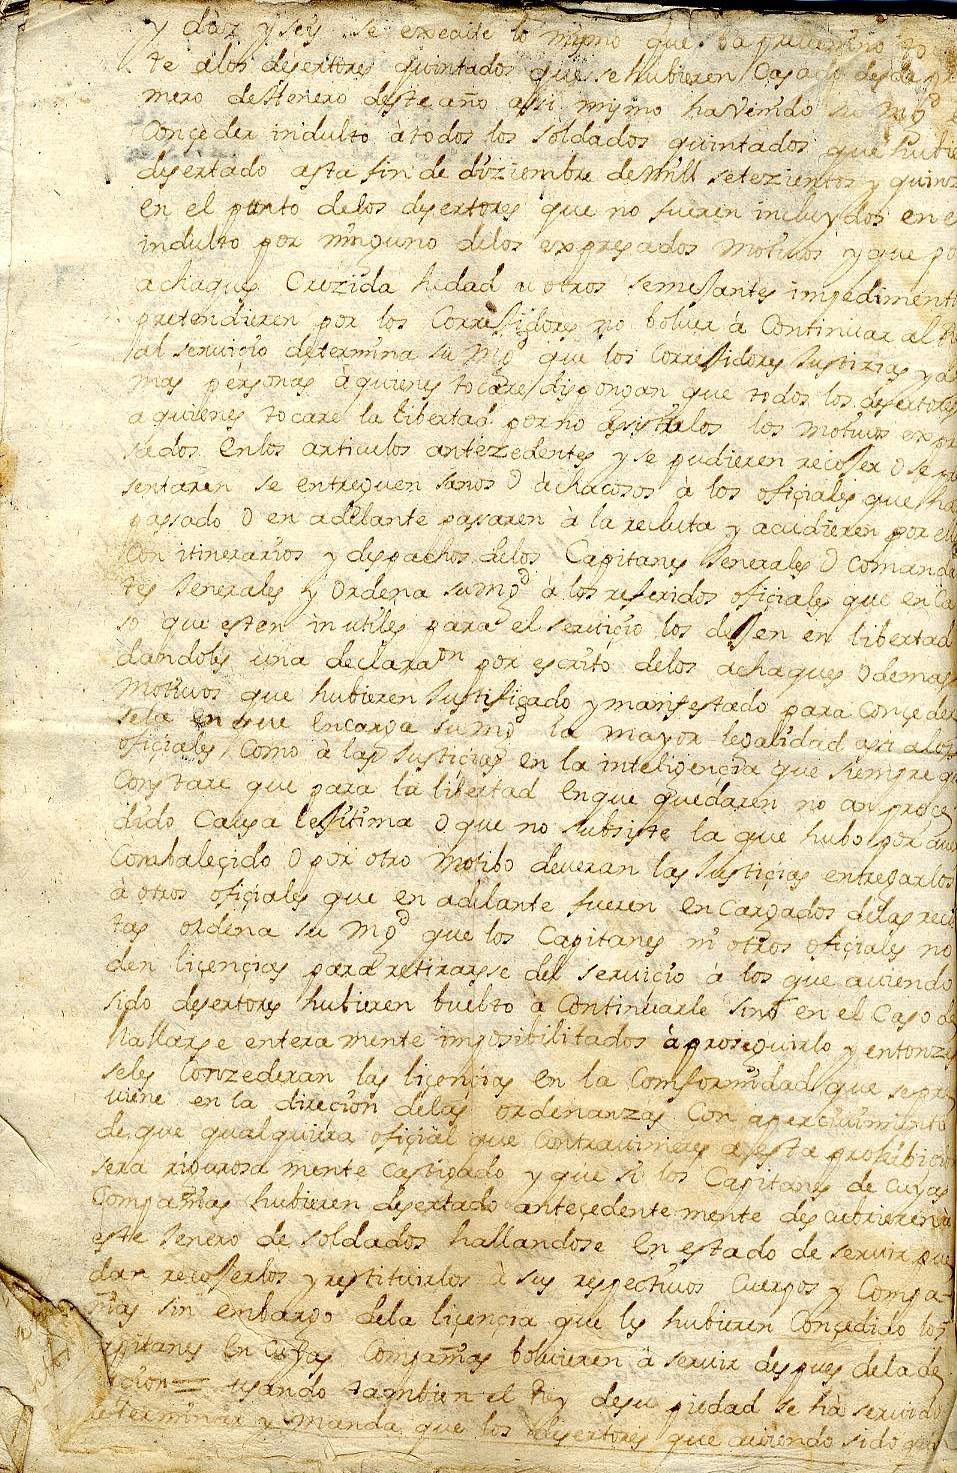 y diez y seis se execute lo mismo que ba prevenido to
te a los desertores quintados que se hubieren Casado desde pr
mero de Henero deste año assi mismo ha Venido su Mgd e
Conçeder indulto à todos los soldados quintados que hubie
desertado asta fin de diziembre de Mill setezientos y quinz
en el punto de los desertores que no fueren incluydos en e
indulto por ninguno de los expresados Motivos y que po
achaques Crezida hedad u otros semejantes impediment
pretendieren por los Correjidores no bolver à Continuar al R
al servicio determina su Mgd que los Correjidores Justizias y de
mas personas à quienes tocare dispongan que todos los desertores
a quienes tocare la libertad por no asistirlos los Motivos expr
sados en los articulos antezedentes y se pudieren recojer o se pre
sentaren se entreguen sanos o achacosos à los ofiçiales que ha
passado o en adelante passaren à la recluta y acudieren por ell
Con itinerarios y despachos de los Capitanes Jenerales o Comanda
tes Jenerales y Ordena su Mgd à los referidos ofiçiales que en ca
so que esten inutiles para el serviçio los dejen en libertad
dandoles una declaraon por escrito de los achaques o demas
Motivos que hubieren Justificado y manifestado para Conçeder
sela en que encarga su Mgd la mayor legalidad asi a los
ofiçiales Como à las Justiçias en la inteligençia que siempre q
Constare que para la libertad en que quedaren no an proce
dido Causa lejitima o que no subsiste la que hubo por aver
Combaleçido o por otro Motibo deveran las Justiçias entregarlos
à otros ofiçiales que en adelante fueren encargados de las reclu
tas ordena su Mgd que los Capitanes ni otros ofiçiales no
den liçençias para retirarsse del servicio à los que aviendo
sido desertores hubieren buelto à Continuarle Sino en el Caso de
hallarse entera mente imposibilitados à proseguirlo y entonzes
seles Conzederan las liçençias en la Comformidad que se pre
viene en la direcion de las ordenanzas Con aperçivimiento
de que qualquiera ofiçial que Contraviniere a esta prohibicio
sera rigurosa mente castigado y que si los Capitanes de cuyas
Compañias hubieren desertado anteçedente mente descubrieren a
este Jenero de soldados hallandose en estado de servir pue
dan recojerlos y restituirlos à sus respectivos Cuerpos y Compa-
ñias sin embargo de la liçençia que les hubieren Conçedido los
apitanes en Cuyas Compañias bolvieren à servir despues de la de
rcion = usando tambien el Rey de su piedad se hà servido
determinar y manda que los desertores que aviendo sido quin